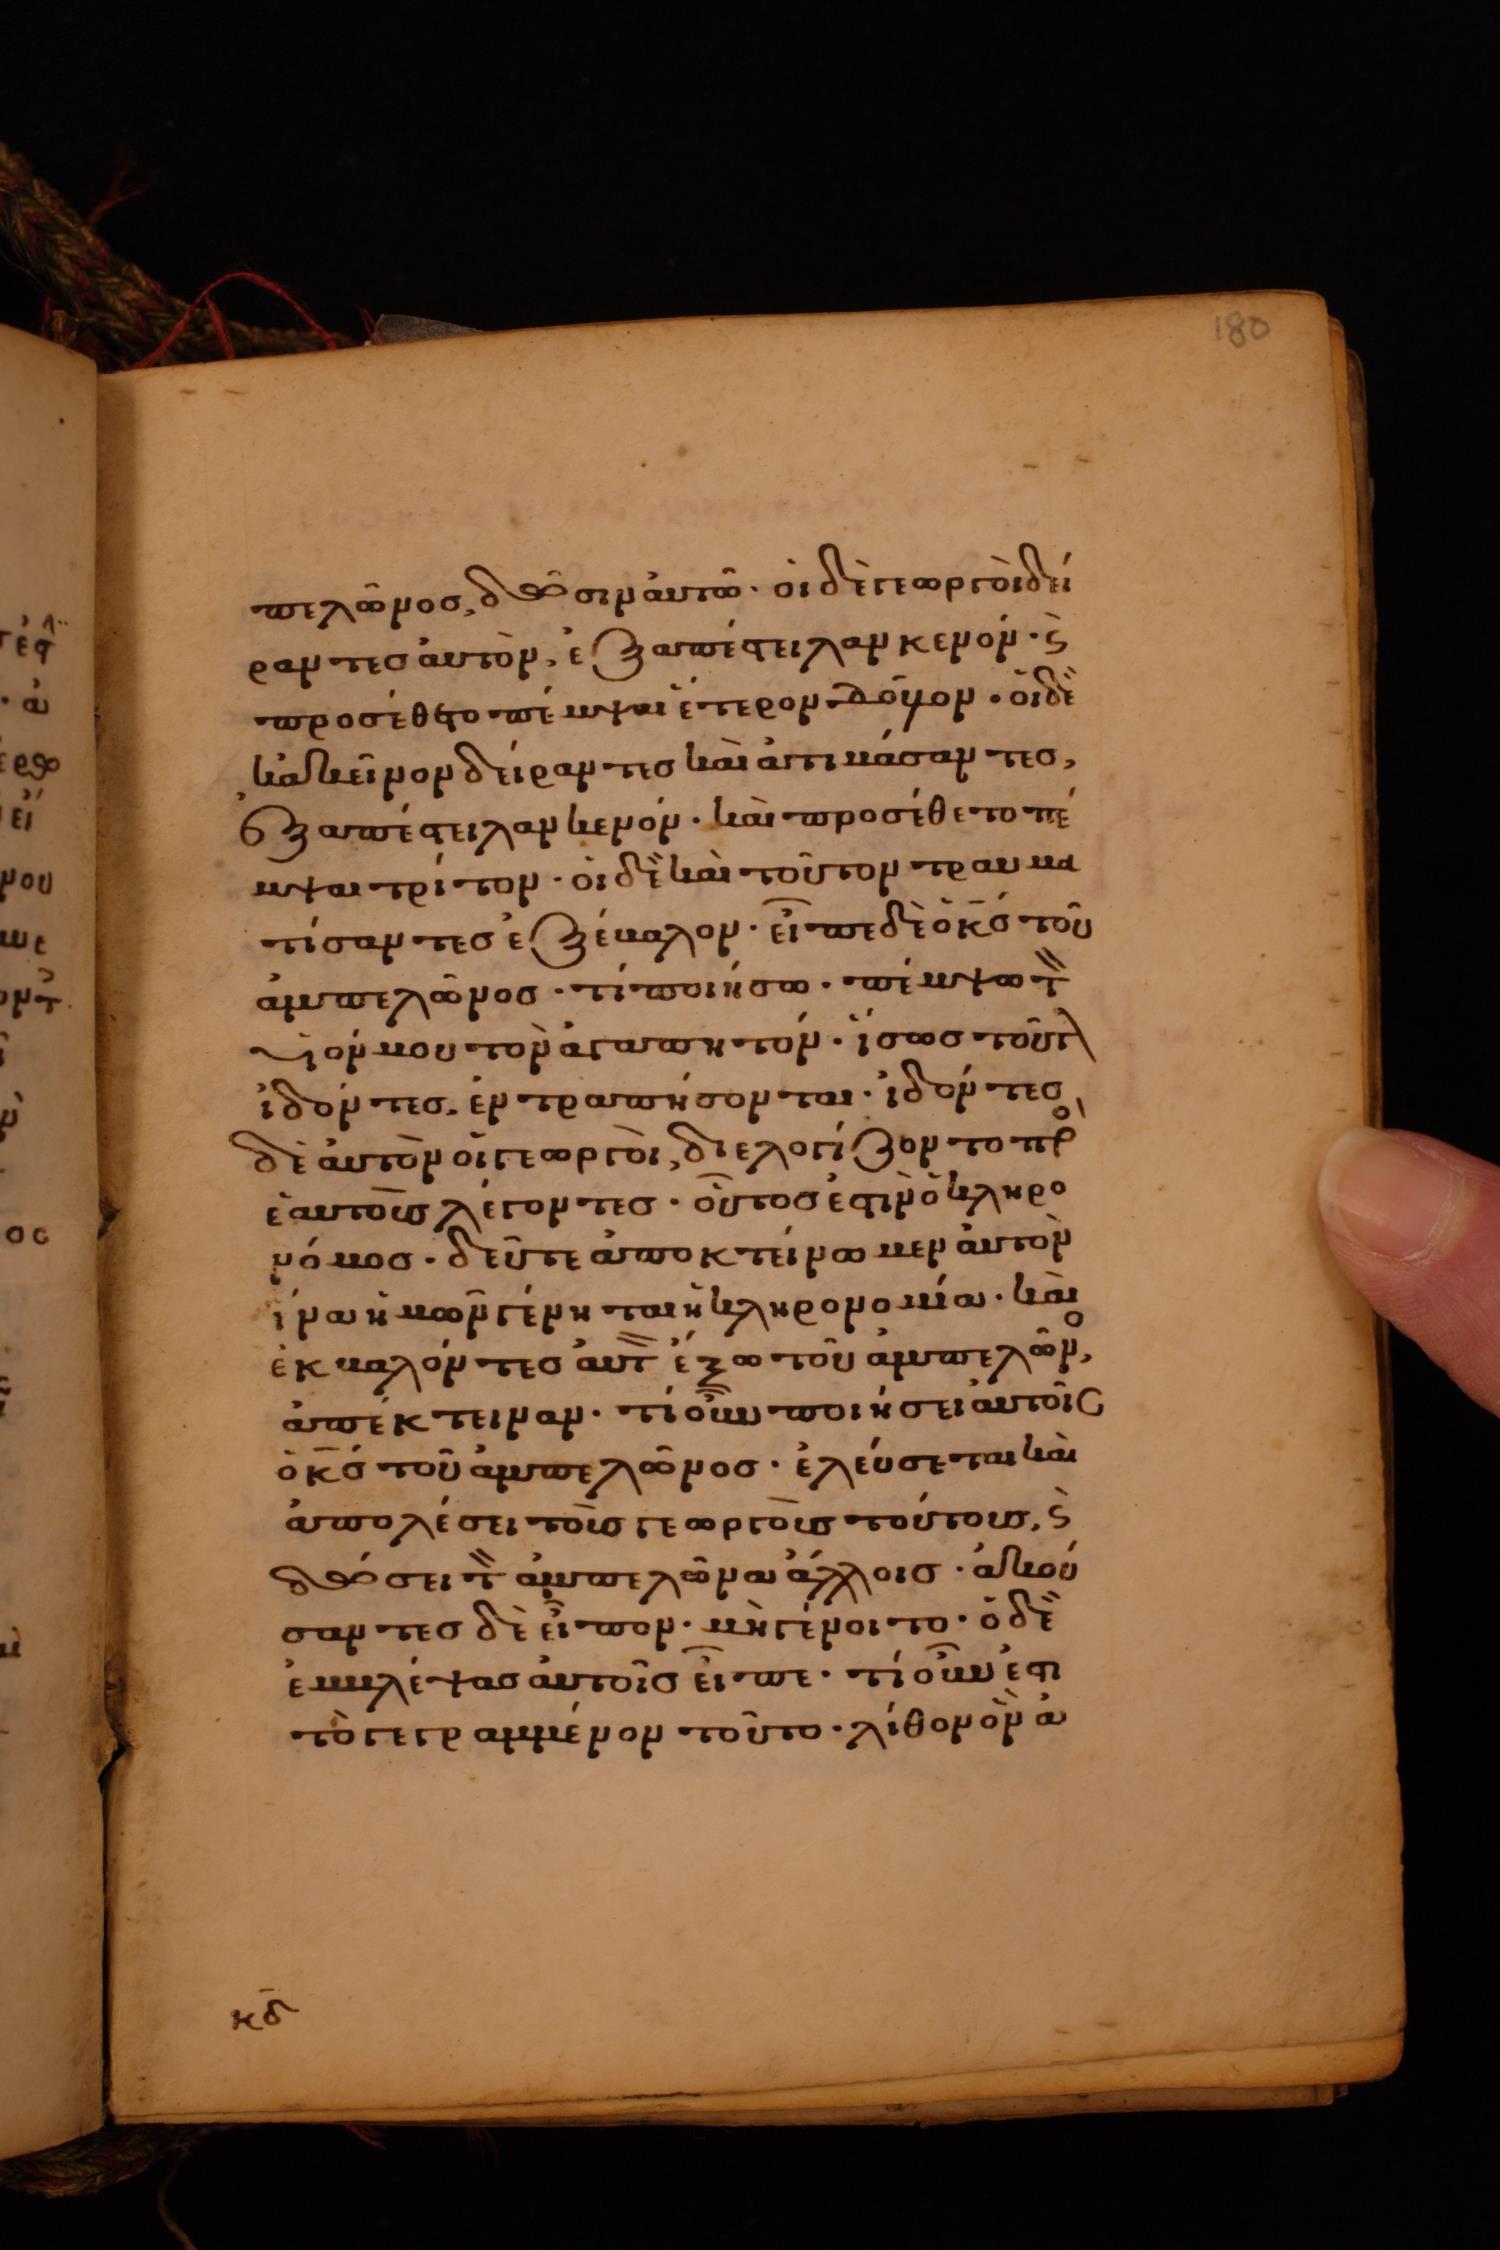 180
πελῶνος, δῶσιν αὐτῶ · οἱ δὲ γεωργοὶ δεί
ραντες αὐτὸν, ἐξαπέστειλαν κενόν · ϛ̀
προσέθετο πέμψαι ἕτερον δοῦλον · οἱ δὲ
κἀκεῖνον δείραντες καὶ ἀτιμάσαντες,
ἐξαπέστειλαν κενόν · καὶ προσέθετο πέ
μψαι τρίτον · οἱ δὲ καὶ τοῦτον τραυμα
τίσαντες ἐξέβαλον · εἶπε δὲ ὁ κ̅ς̅ τοῦ
ἀμπελῶνος · τί ποιήσω · πέμψω τ̀
υἱόν μου τὸν ἀγαπητόν · ἴσως τοῦτ
ἰδόντες, ἐντραπήσονται · ἰδόντες
δὲ αὐτὸν οἱ γεωργοὶ, διελογίζοντο πρ̀ο
ἑαυτοὺς λέγοντες · οὗτος ἐστὶν ὁ κληρο
νόμος · δεῦτε ἀποκτείνωμεν αὐτὸν
ἵνα ἡμῶν γένηται ἡ κληρονομία · καὶ
ἐκβαλόντες αὐτ̀ ἔξω τοῦ ἀμπελῶνο,
ἀπέκτειναν · τί οὖν ποιήσει αὐτοῖς
ὁ κ̅ς̅ τοῦ ἀμπελῶνος · ἐλεύσεται καὶ
ἀπολέσει τοὺς γεωργοὺς τούτους, ϛ̀
δώσει τ̀ ἀμπελῶνα ἄλλοις · ἀκού
σαντες δὲ εἶπον · μὴ γένοιτο · ὁ δὲ
ἐμβλέψας αὐτοῖς εἶπε · τί οὖν ἐστι
τὸ γεγραμμένον τοῦτο · λίθον ὃν ἀ
κδ̅